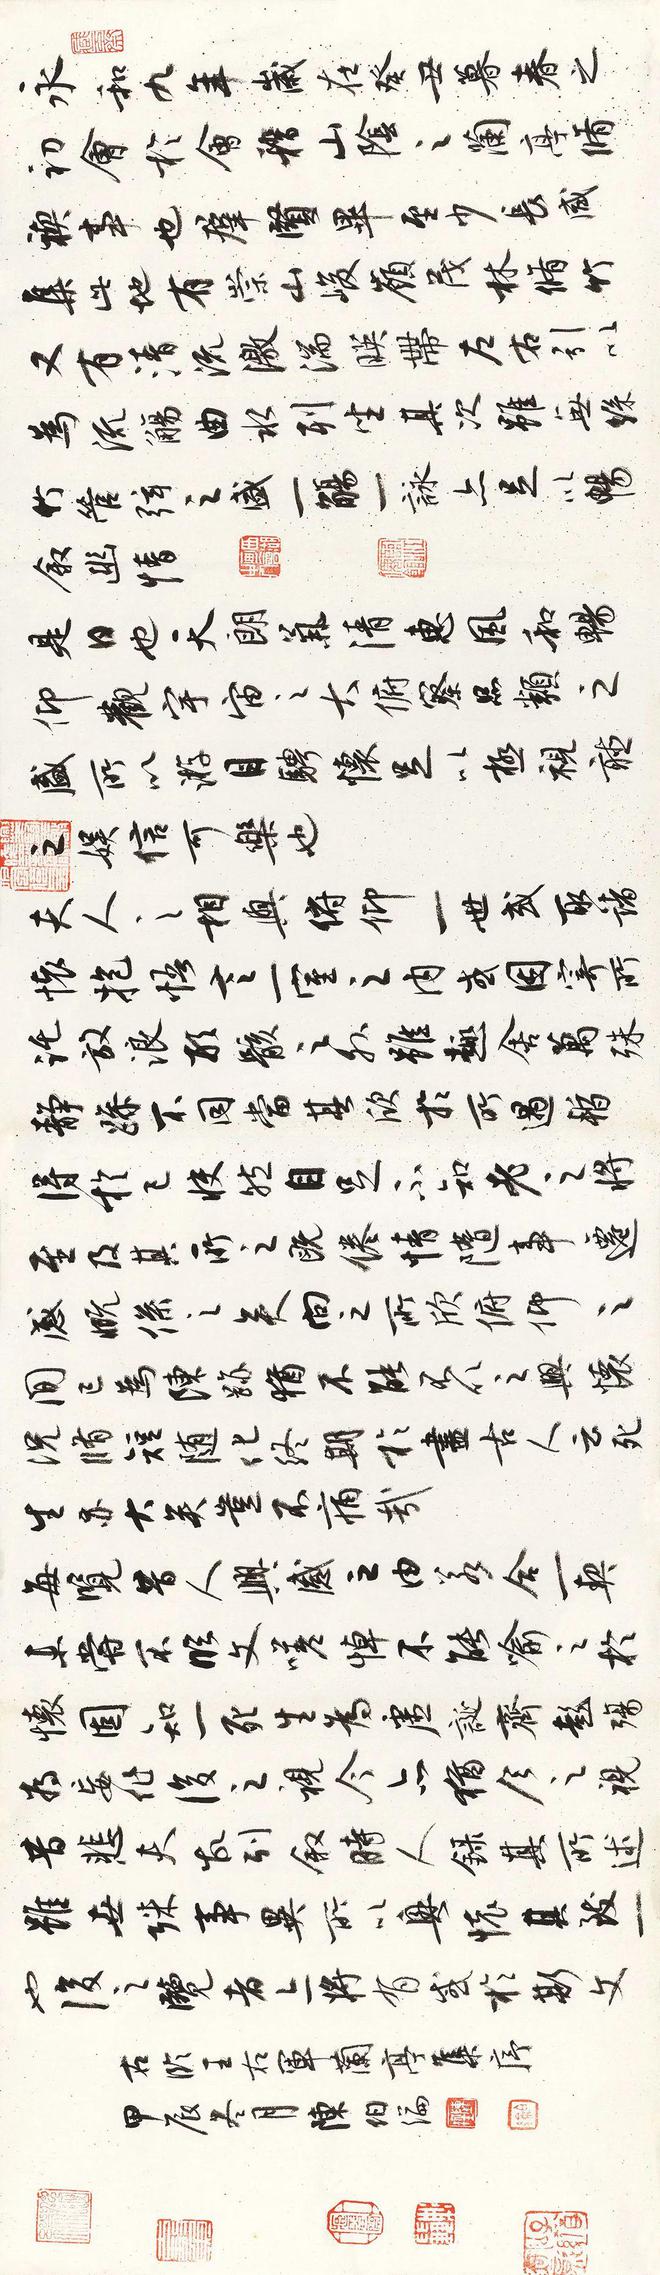 永和九年歲在癸丑暮春之
初會於會稽山陰之蘭亭脩
禊事也群賢畢至少長咸
集此地有崇山峻嶺茂林脩竹
又有清流激湍暎帶左右引以
為流觴曲水列坐其次雖無絲
竹管弦之盛一觴一詠亦足以暢
敘幽情
是日也天朗氣清惠風和暢
仰觀宇宙之大俯察品類之
盛所以游目騁懷足以極視聽
之娛信可樂也
夫人之相與俯仰一世或取諸
懷抱悟言一室之內或因寄所
託放浪形骸之外雖趣舍萬殊
靜躁不同當其欣於所遇暫
得於己快然自足不知老之將
至及其所之既倦情隨事遷
感慨係之矣向之所欣俯仰之
間已為陳跡猶不能不以之興懷
況脩短隨化終期於盡古人云死
生亦大矣豈不痛哉
每覽昔人興感之由若合一契
未嘗不臨文嗟悼不能喻之於
懷固知一死生為虛誕齊彭殤
為妄作後之視今亦猶今之視
昔悲夫故列敘時人錄其所述
雖世殊事異所以興懷其致一
也後之覽者亦將有感於斯文
右臨王右軍蘭亭集序
甲辰冬月陳伯